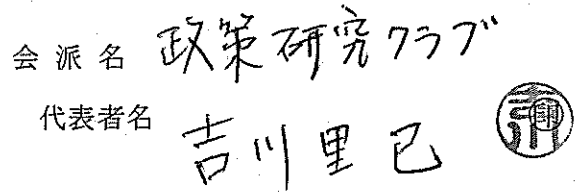 会派名 政策研究クラブ
代表者名 吉川里己